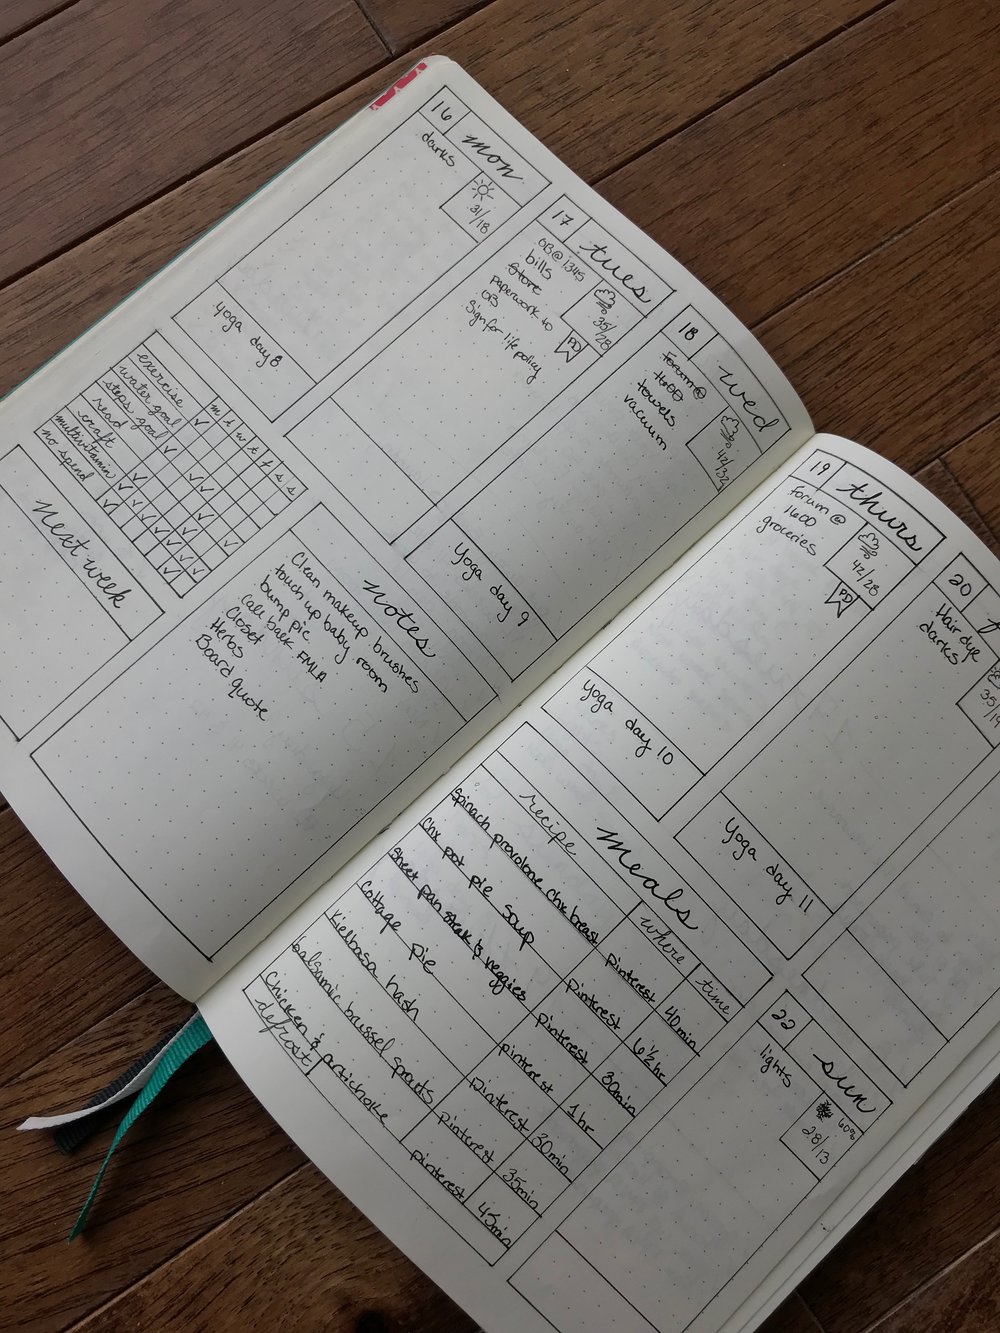 16
mon
darks
31/18
yoga day 8
17
tues
OB@1345
bills
store
paperwork to
OB
Sign for life policy
35/28
PD
Yoga day 9
18
wed
Forum@
1600
towels
vacuum
42/32
m t w t f s s
exercise
water goal
steps goal
read
craft
multivitamin
no spend
Next week
Notes
Clean makeup brushes
touch up baby room
bump pic
Call back FMLA
Closet
Herbs
Board quote
19
thurs
Forum @
1600
groceries
42/28
PD
yoga day 10
20
f
Hair dye
darks
35/
Yoga day 11
Meals
recipe where time
Spinach provolone chx breast pinterest 40min
Chx pot pie soup pinterest 6½hr
Sheet pan steak & veggies pinterest 30min
Cottage pie pinterest 1hr
Kielbasa hash Pinterest 30min
balsamic brussel sprouts pinterest 35min
Chicken & artichoke pinterest 45min
defrost
22
sun
lights
60%
28/13